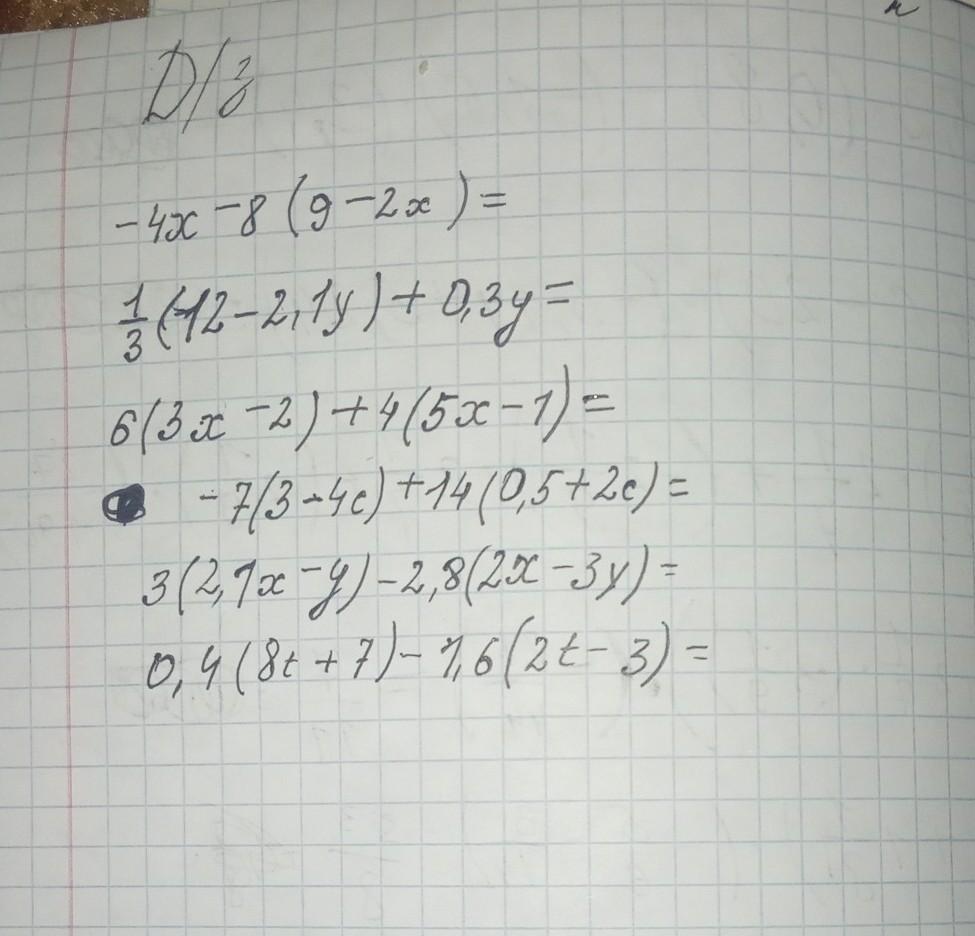 D/з
-4x-8(9-2x)=
1/3(12-2,1y)+0,3y=
6(3x-2)+4(5x-1)=
-7(3-4c)+14(0,5+2c)=
3(2,1x-y)-2,8(2x-3y)=
0,4(8t+7)-1,6(2t-3)=